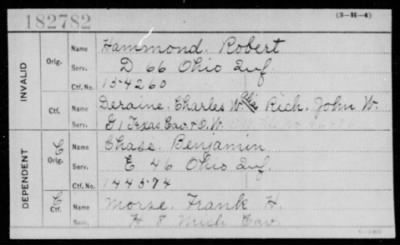 182782
(3-H-4)
INVALID
Orig.
Name Hammond, Robert
Serv. D 66 Ohio Inf.
Ctf. No. 154260
Ctf.
Name Deraine, Charles W. alias Rich, John W.
Serv. G 1 Texas Cav. & I. W.
DEPENDENT
Orig.
Name Chase, Benjamin
Serv. E 46 Ohio Inf.
Ctf. No. 144574
Ctf.
Name Morse, Frank H.
Serv. H 8 Mich Cav.